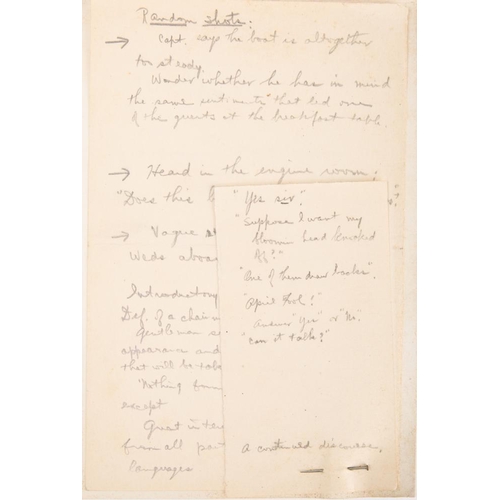 Random Shots:
→ Capt. says the boat is altogether
too steady.
Wonder whether he has in mind
the same sentiments that led one
of the guests at the breakfast table.
→ Heard in the engine room:
"Does this
→ Vague
Weds aboa
Introductory
Def. of a chair
Gentleman
appearance and
that will be
"Nothing
except
Great in
from all
languages
"Yes sir."
"Suppose I want my
bloomin head knocked
off?"
"One of them draw backs".
"April Fool!"
Answer "Yes" & "No".
"Can it talk?"
A continued discourse.